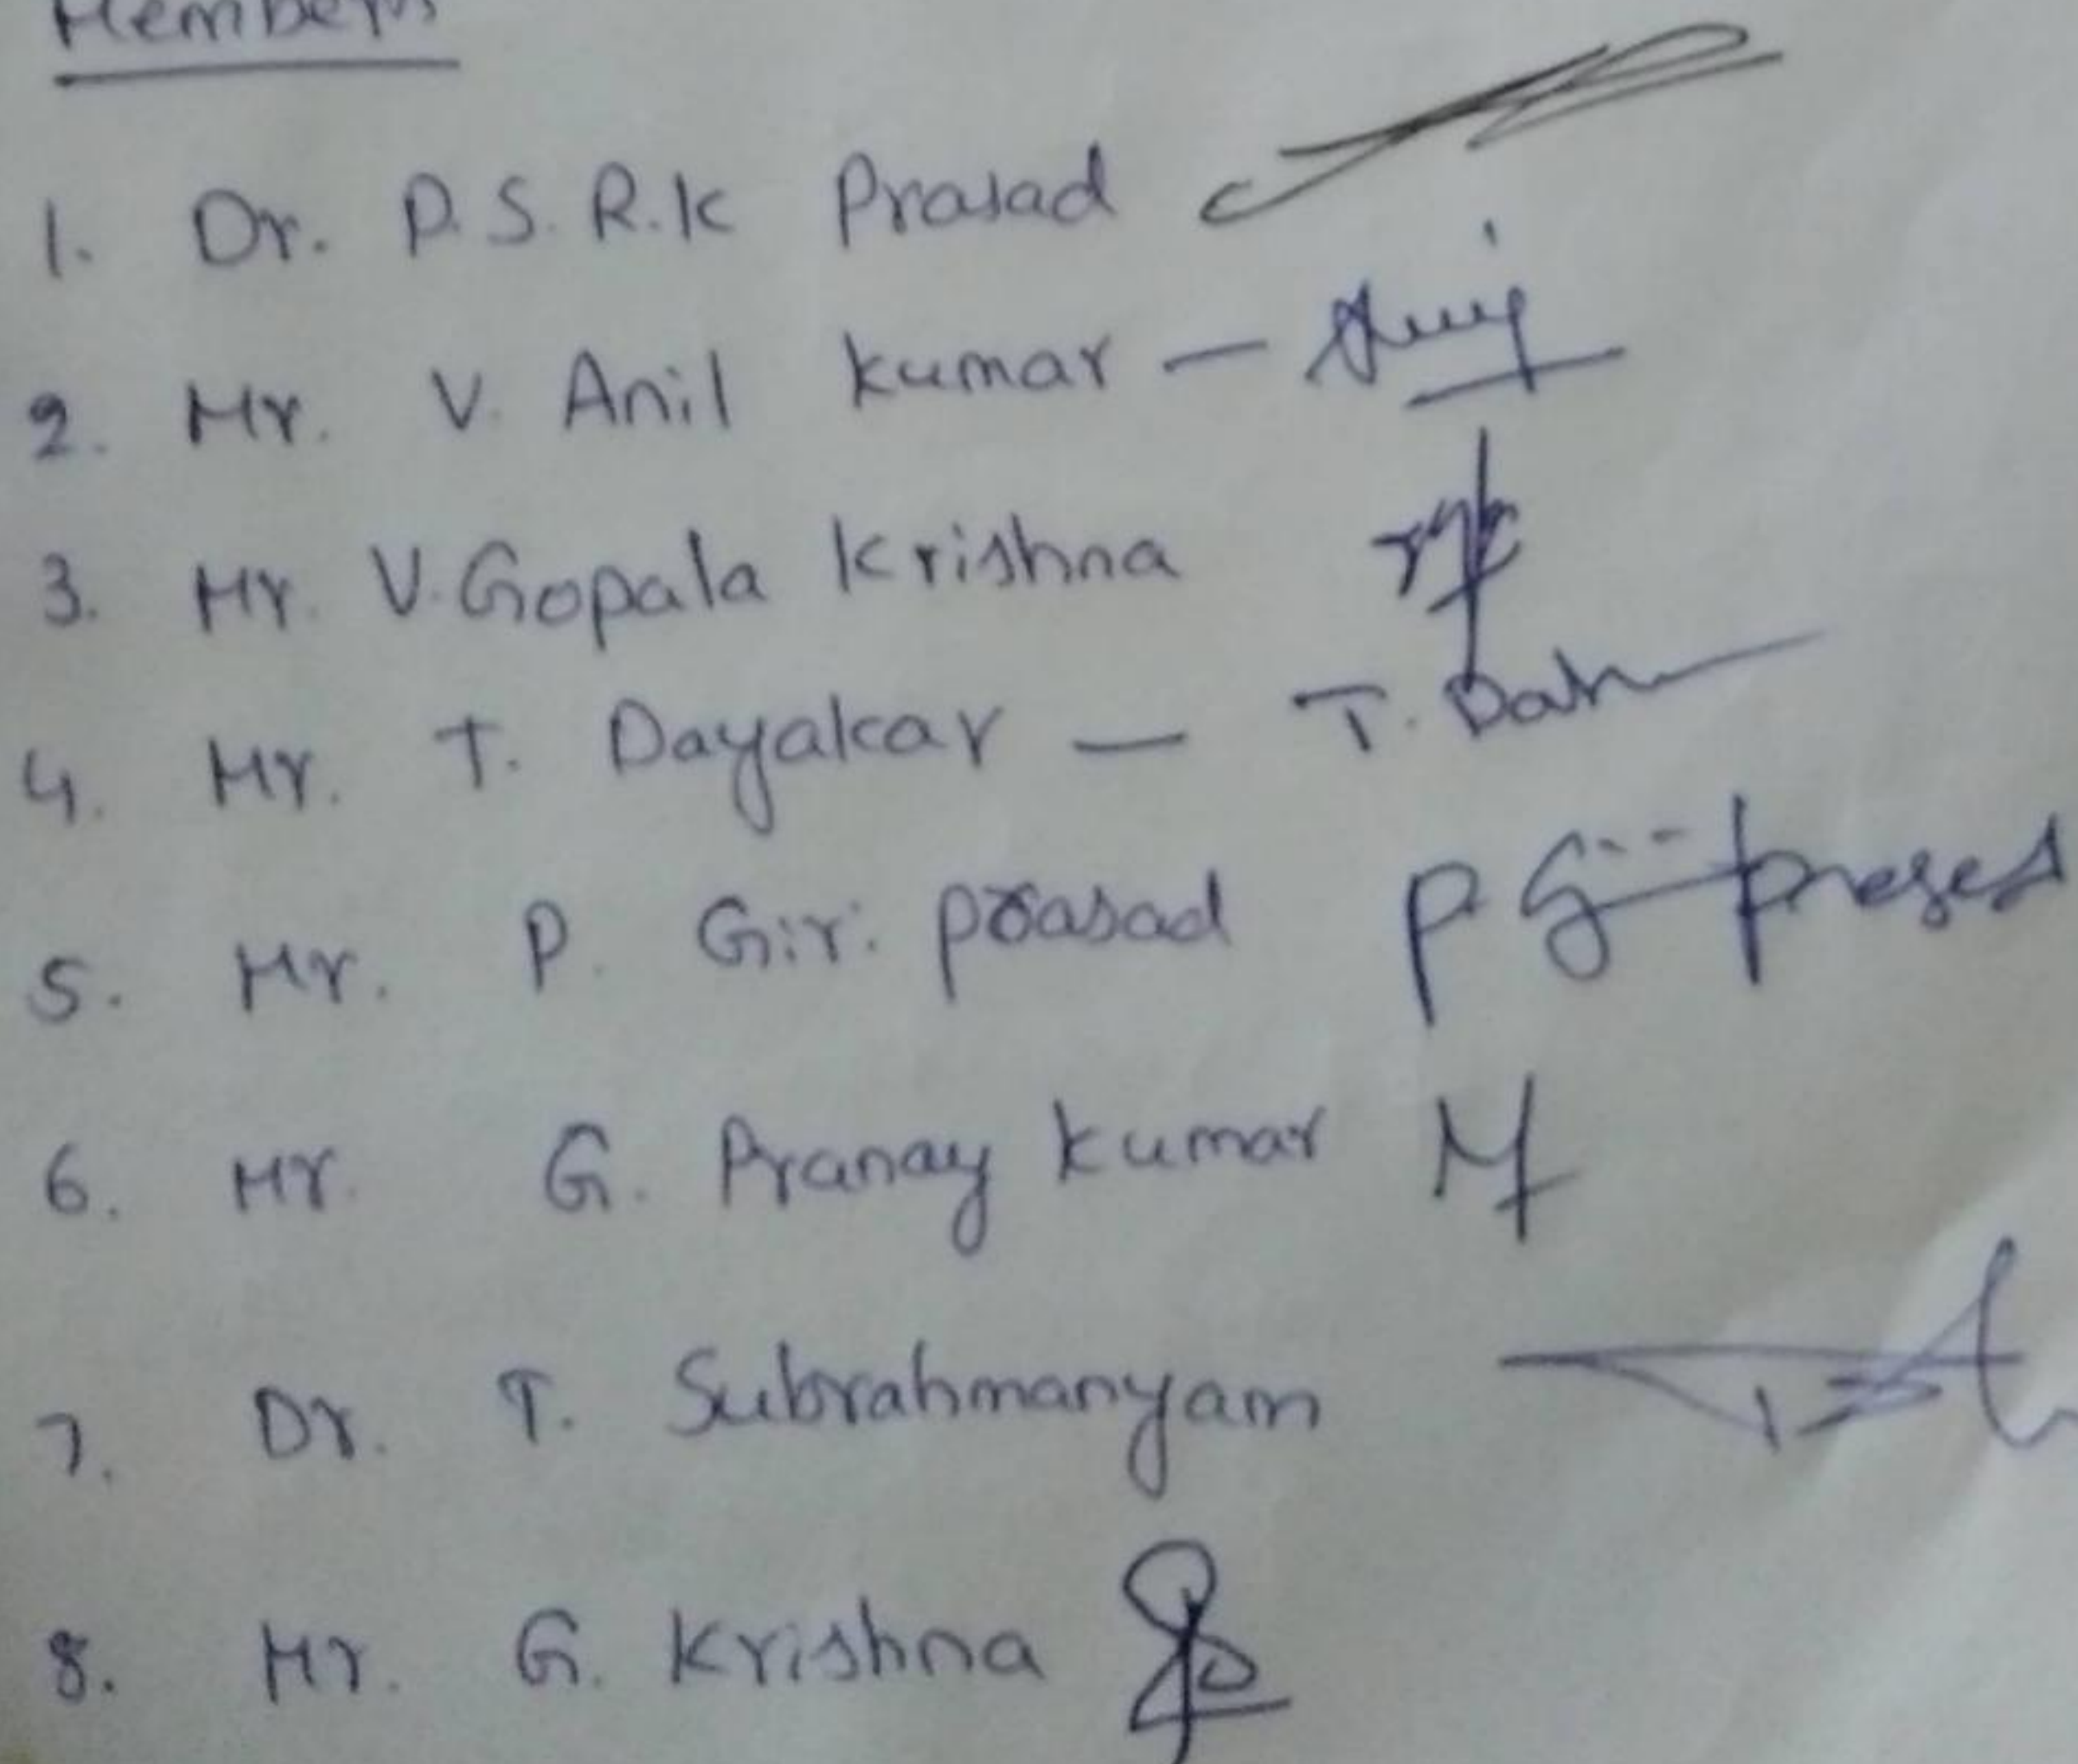 Members
1. Dr. P. S. R. K Prasad
2. Mr. V. Anil kumar –
3. Mr. V. Gopala Krishna
4. Mr. T. Dayakar – T.
5. Mr. P. Giri prasad P Giri prased
6. Mr. G. Pranay kumar
7. Dr. T. Subrahmanyam
8. Mr. G. Krishna